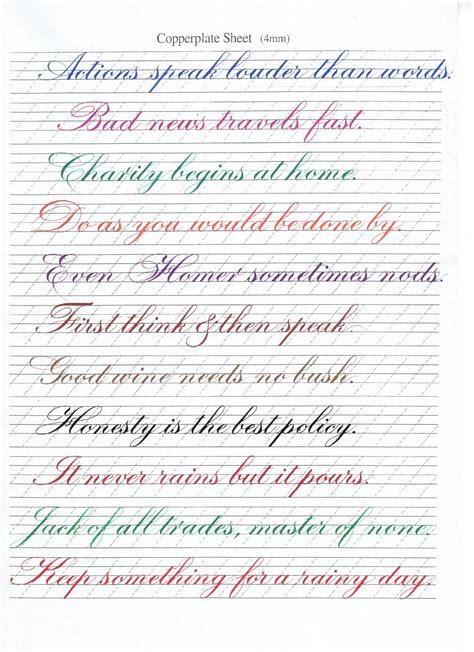 Copperplate Sheet (4mm)
Actions speak louder than words.
Bad news travels fast.
Charity begins at home.
Do as you would be done by.
Even Homer sometimes nods.
First think & then speak.
Good wine needs no bush.
Honesty is the best policy.
It never rains but it pours.
Jack of all trades, master of none.
Keep something for a rainy day.